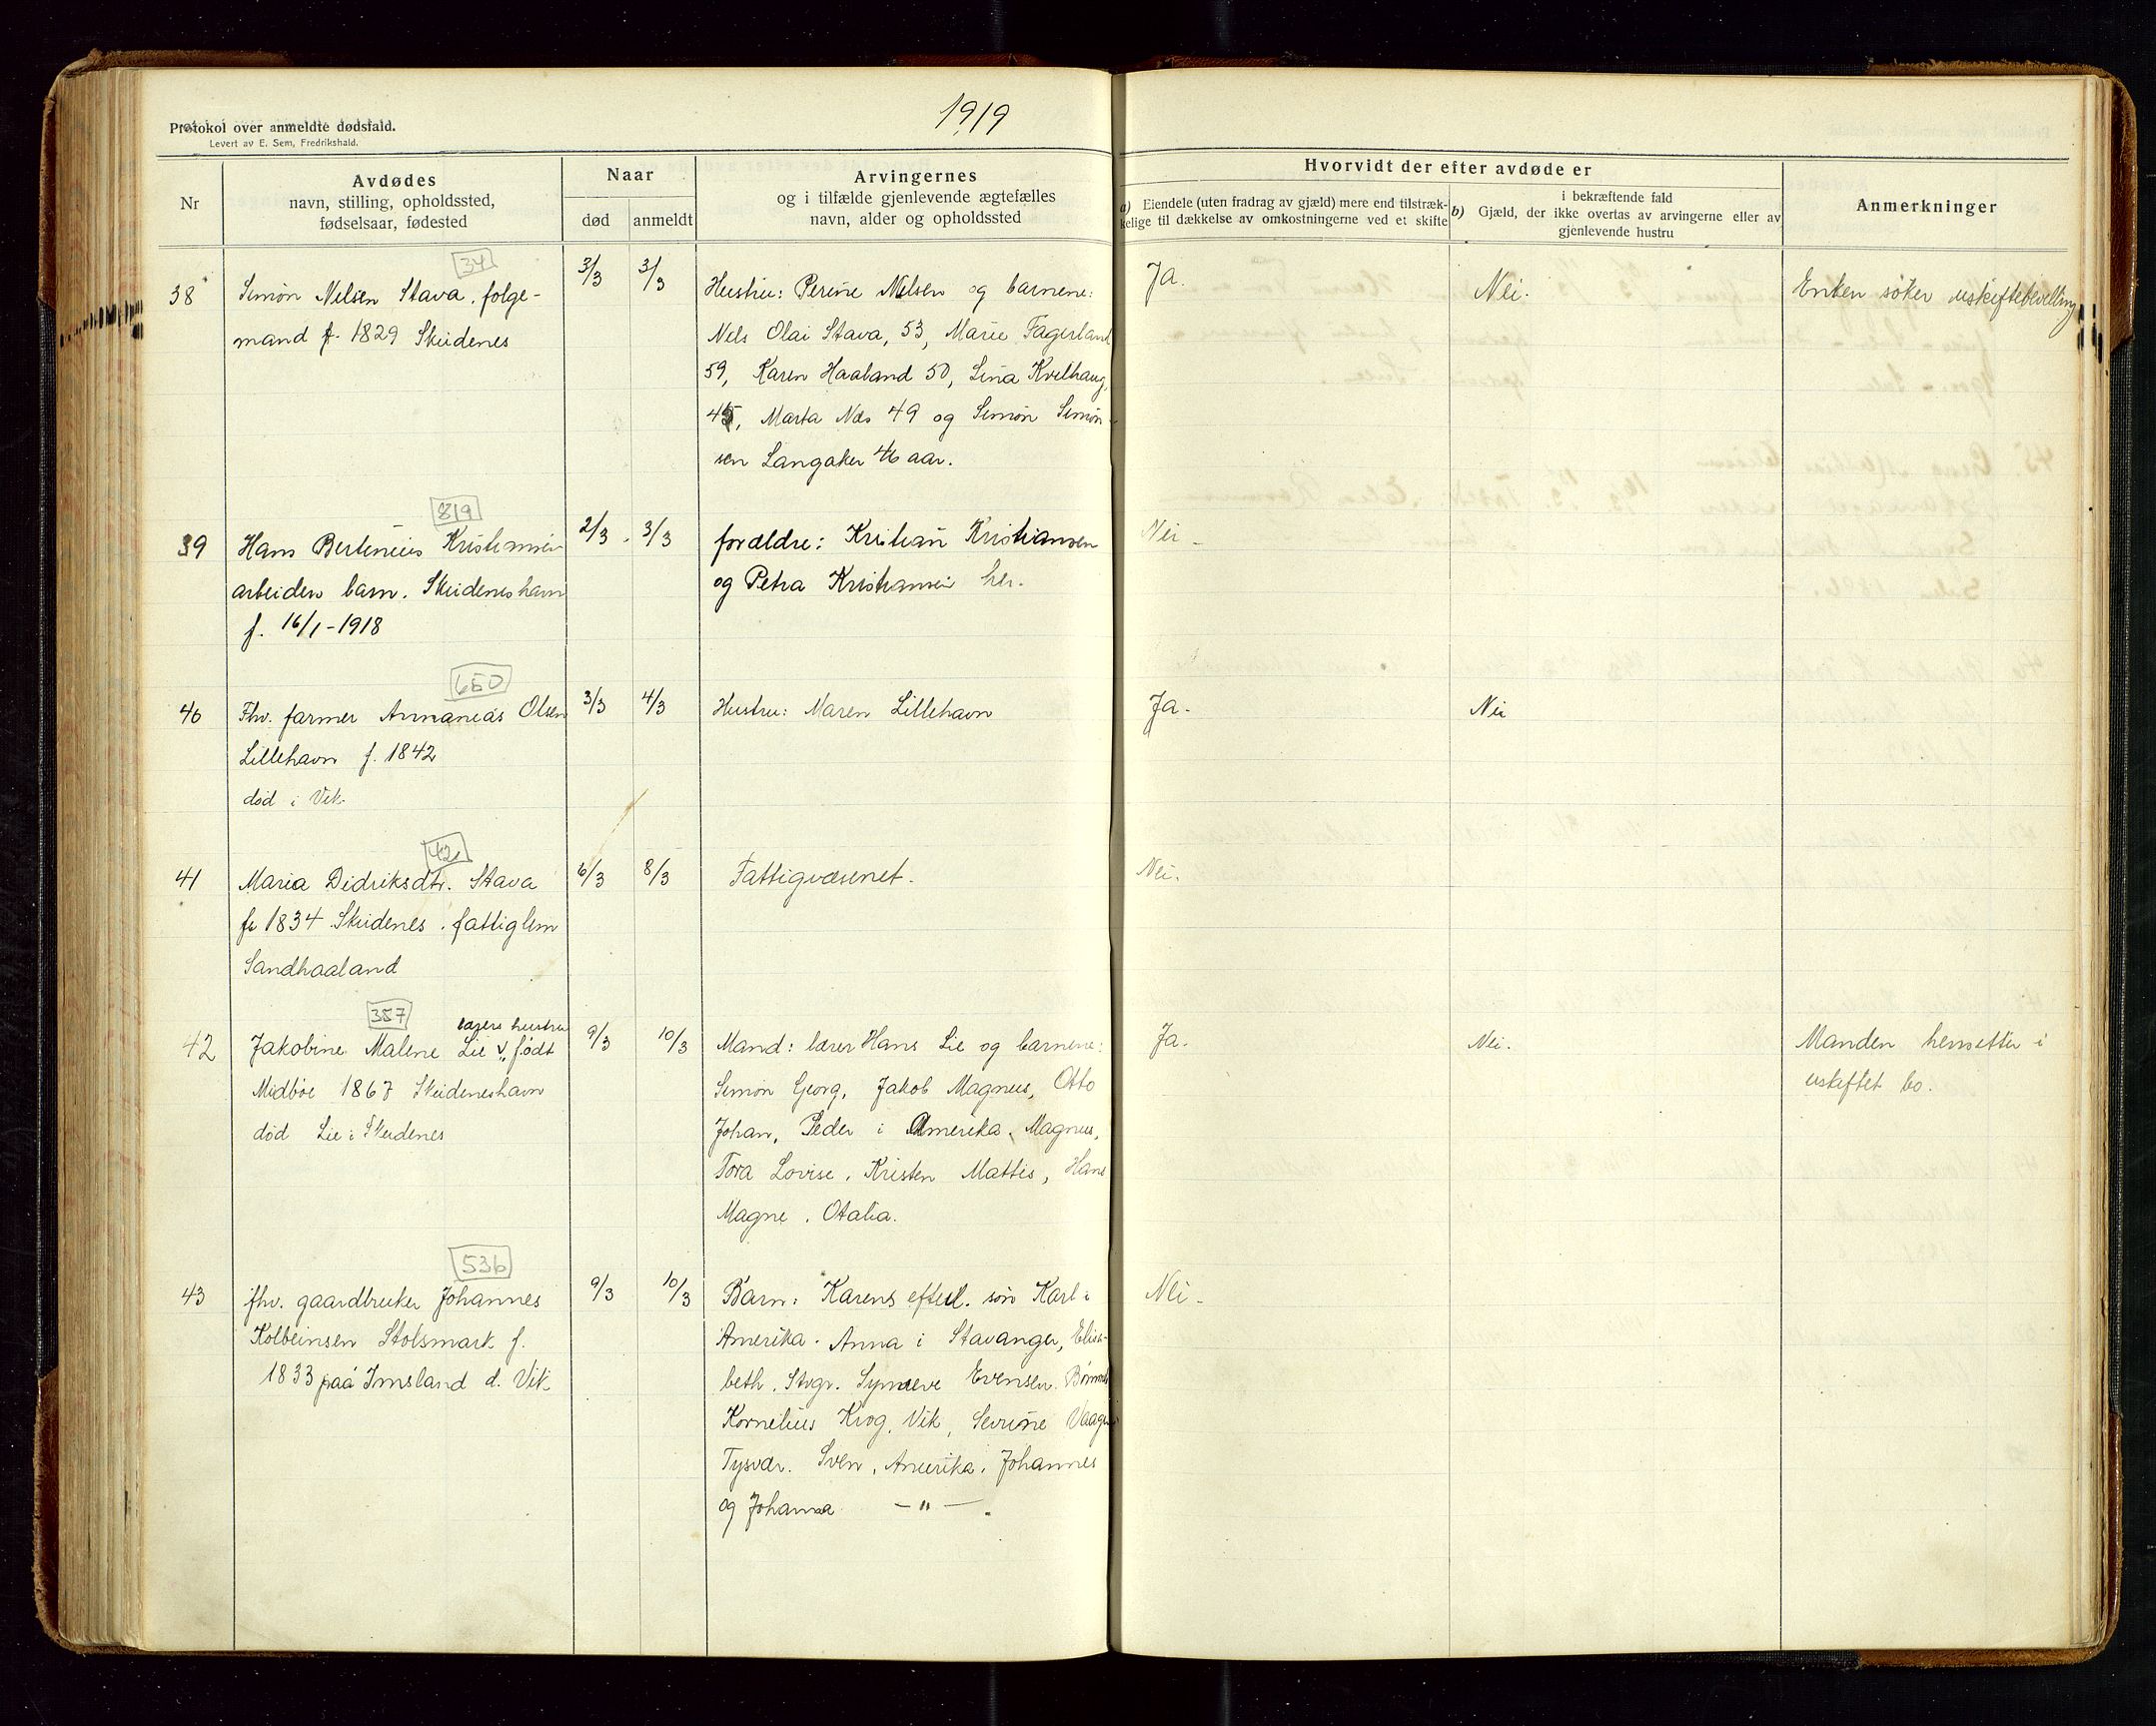 1919
Protokol over anmeldte dødsfald.
Levert av E. Sem, Fredrikshald.
Nr
Avdødes
navn, stilling, opholdssted,
fødselsaar, fødested
Naar
død
anmeldt
Arvingernes
og i tilfælde gjenlevende ægtefælles
navn, alder og opholdssted
Hvorvidt der efter avdøde er
a) Eiendele (uten fradrag av gjæld) mere end tilstræk-
kelige til dækkelse av omkostningerne ved et skifte
b) i bekræftende fald
Gjæld, der ikke overtas av arvingerne eller av
gjenlevende hustru
Anmerkninger
34
38 Simon Nelsen Stava, folge-
mand f. 1829 Skudenes
3/3 3/3
Hustru: Perine Nilsen og barnene:
Nels Olai Stava, 53, Marie Fagerland
59, Karen Haaland 50, Lina Kvilhaug,
45, Marta Næs 49 og Simon Simon-
sen Langaker 46 aar.
Ja.
Nei.
Enken søker uskiftebevilling
819
39 Hans Bertineius Kristiansen
arbeiders barn. Skudeneshavn
f. 16/1-1918
2/3. 3/3
forældre: Kristian Kristiansen
og Petra Kristiansen her.
Nei -
650
40 Fhv. farmer Annaneas Olsen
Lillehavn f. 1842
død i Vik.
3/3 4/3
Hustru: Maren Lillehavn
Ja.
Nei
42
41 Maria Didriksdtr. Stava
f. 1834 Skudenes. fattiglem
Sandhaaland
6/3 8/3
Fattigvæsenet.
Nei.
357
42 Jakobine Malene Lie lærers hustru v, født
Midbøe 1867 Skudeneshavn
død Lie i Skudenes
9/3 10/3
Mand: lærer Hans Lie og barnene:
Simon Georg, Jakob Magnus, Otto
Johan, Peder i Amerika. Magnus,
Tora Lovise, Kristen Mattis, Hans
Magne, Otalia.
Ja.
Nei.
Manden hensitter i
uskiftet bo.
536
43 fhv. gaardbruker Johannes
Kolbeinsen Stolsmark f.
1833 paa Imsland d. Vik
9/3 10/3
Barn: Karens efterl. søn Karl i
Amerika. Anna i Stavanger, Elisa-
beth. Stvgr. Synneve Evensen.
Kornelius Krog, Vik, Severine Vaage
Tysvær. Sven, Amerika. Johannes
og Johanna — " — .
Nei -